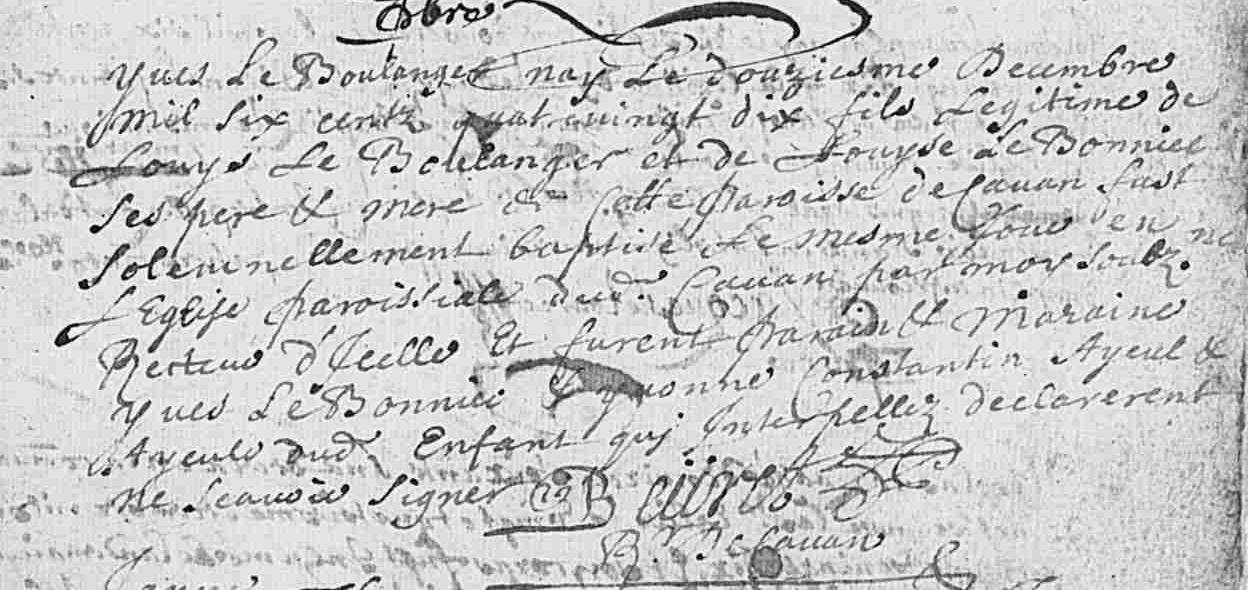 Xbre
yues Le Boulanger nay Le douziesme Decembre
mil six centz quatreuingt dix fils Legitime de
Louys Le Boulanger et de Louyse Le Bonniec
ses pere & mere de Cette paroisse de Cauan fust
solemnellement baptisé Le mesme Jour en
L'Eglise paroissiale dud. Cauan par moy soubz.
Recteur d'Icelle Et furent parain & Maraine
yues Le Bonniec & yuonne Constantin Ayeul &
Ayeule dud. Enfant quj Interpellez declarerent
ne scauoir signer
R. De Cauan